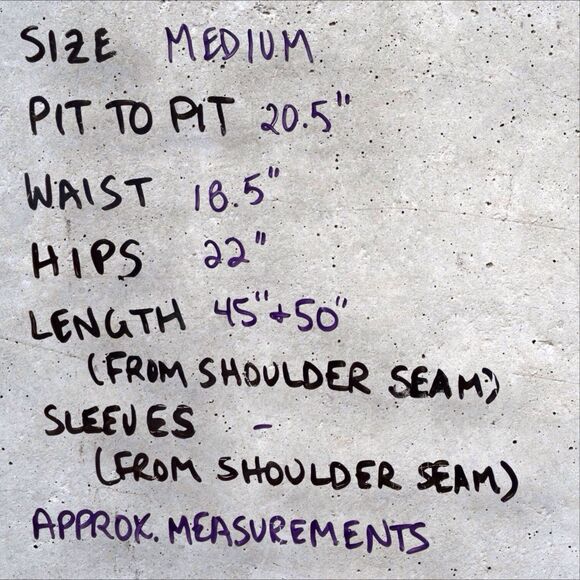 SIZE MEDIUM
PIT TO PIT 20.5"
WAIST 18.5"
HIPS 22"
LENGTH 45"+50"
(FROM SHOULDER SEAM)
SLEEVES -
(FROM SHOULDER SEAM)
APPROX. MEASUREMENTS